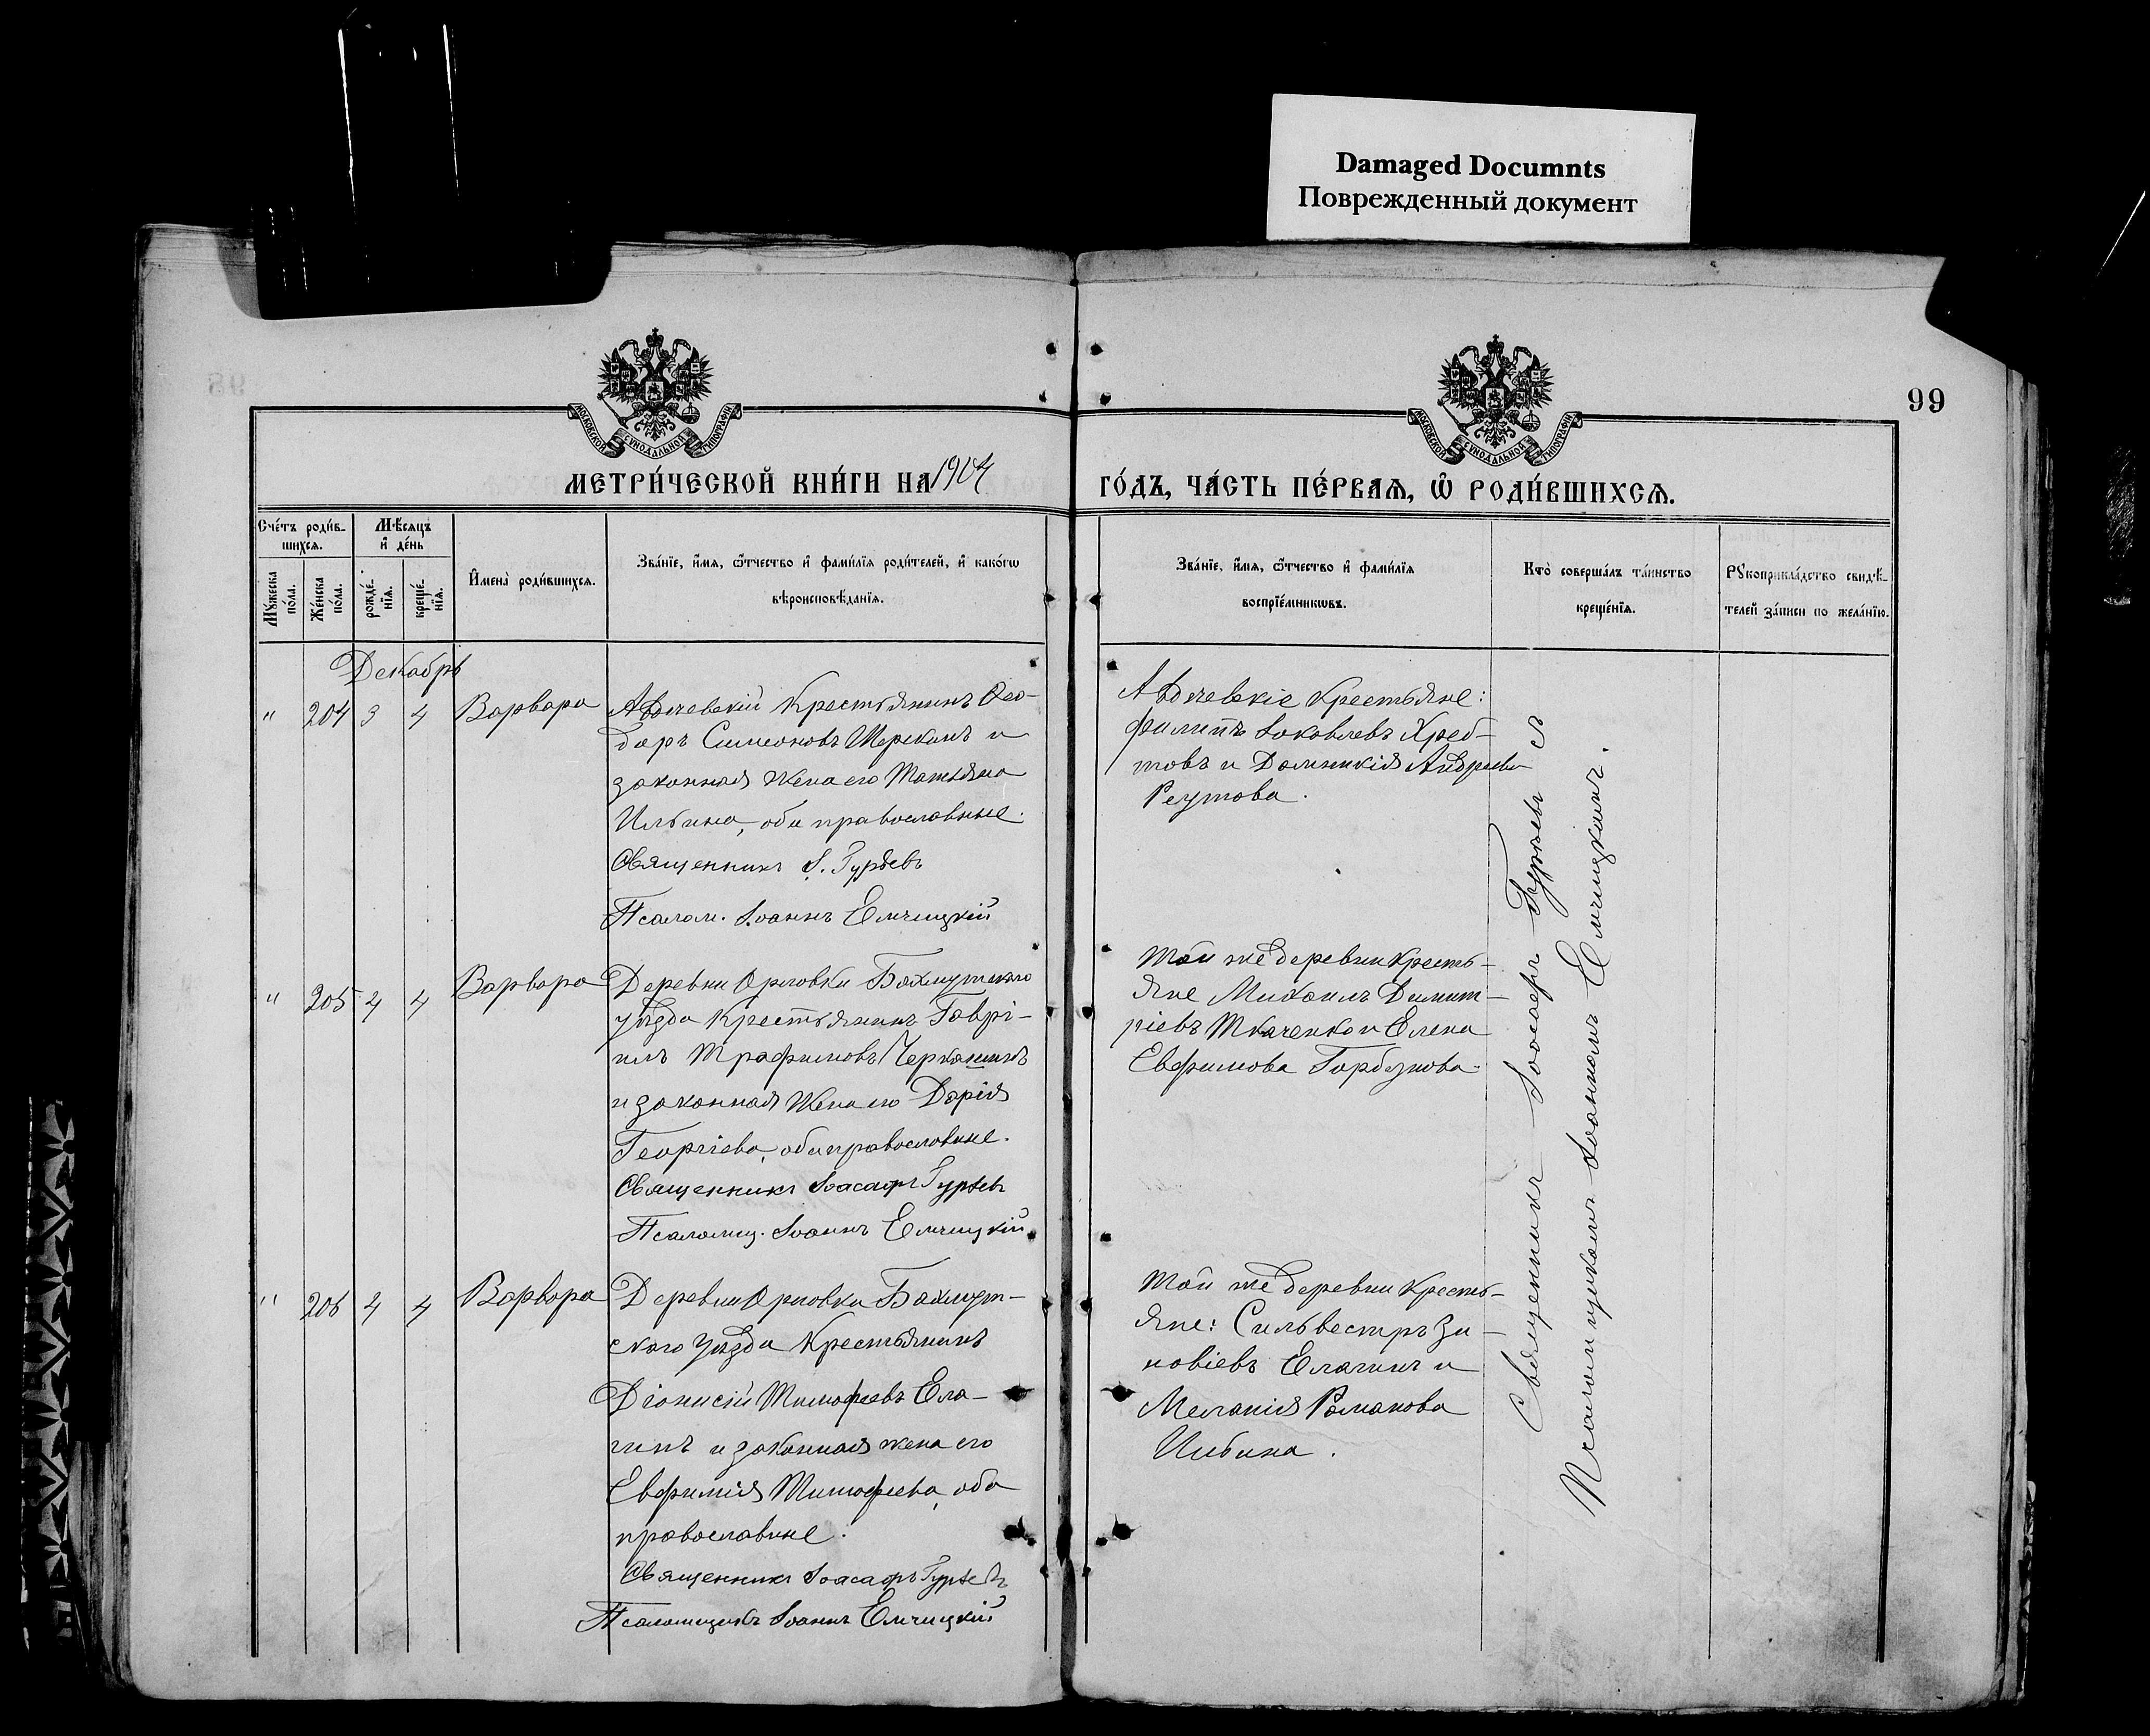 Damaged Documnts
Поврежденный документ
99
МОСКОВСКОЙ СѴНОДАЛЬНОЙ ТИПОГРАФІИ
МОСКОВСКОЙ СѴНОДАЛЬНОЙ ТИПОГРАФІИ
МЕТРИ́ЧЕСКОЙ КНИ́ГИ НА 1904
ГО́ДЪ, ЧА́СТЬ ПЕ́РВАѦ, Ѽ РОДИ́ВШИХСѦ.
Сче́тъ роди́в-
шихсѧ.
Мѣ́сѧцъ
и҆ де́нь
Мꙋ́жеска
по́ла.
Же́нска
по́ла.
рожде́-
нїѧ.
креще́-
нїѧ.
И҆мена̀ роди́вшихсѧ.
Зва́нїе, и҆́мѧ, ѻ҆́тчество и҆ фами́лїѧ роди́телей, и҆ како́гѡ
вѣроисповѣ́данїѧ.
Зва́нїе, и҆́мѧ, ѻ҆́тчество и҆ фами́лїѧ
воспрїе́мникѡвъ.
Кто̀ соверша́лъ та́инство
креще́нїѧ.
Рꙋкоприкла́дство свидѣ́-
телей за́писи по жела́нїю.
Декабрь
" 204 3 4 Варвара
Авдѣевскій Крестьянинъ Ѳео-
доръ Симеоновъ и
законная жена его Татьяна
Ильина, оба православные.
Священникъ І. Гурьевъ
Псалом. Іоаннъ Емчицкій
Авдѣевскіе Крестьяне:
Филиппъ Іаковлевъ Хреб-
товъ и Домникія Андреева
Реутова.
" 205 4 4 Варвара
Деревни Орловки Бахмутскаго
уѣзда Крестьянинъ Гаврі-
илъ Трофимовъ Черкашинъ
и законная жена его Дарія
Георгіева, оба православные.
Священникъ Іоасафъ Гурьевъ
Псаломщ. Іоаннъ Емчицкій
Той же деревни Кресть-
яне Михаилъ Димит-
ріевъ Ткаченко и Елена
Евфимова Горбунова.
" 206 4 4 Варвара
Деревни Орловки Бахмут-
скаго уѣзда Крестьянинъ
Діонисій Тимофеевъ Ела-
гинъ и законная жена его
Евфимія Тимофеева, оба
православные.
Священникъ Іоасафъ Гурьевъ
Псаломщикъ Іоаннъ Емчицкій
Той же деревни Кресть-
яне: Сильвестръ Зи-
новіевъ Елагинъ и
Меланія Романова
Священникъ Іоасафъ Гурьевъ съ
Псаломщикомъ Іоанномъ Емчицкимъ.